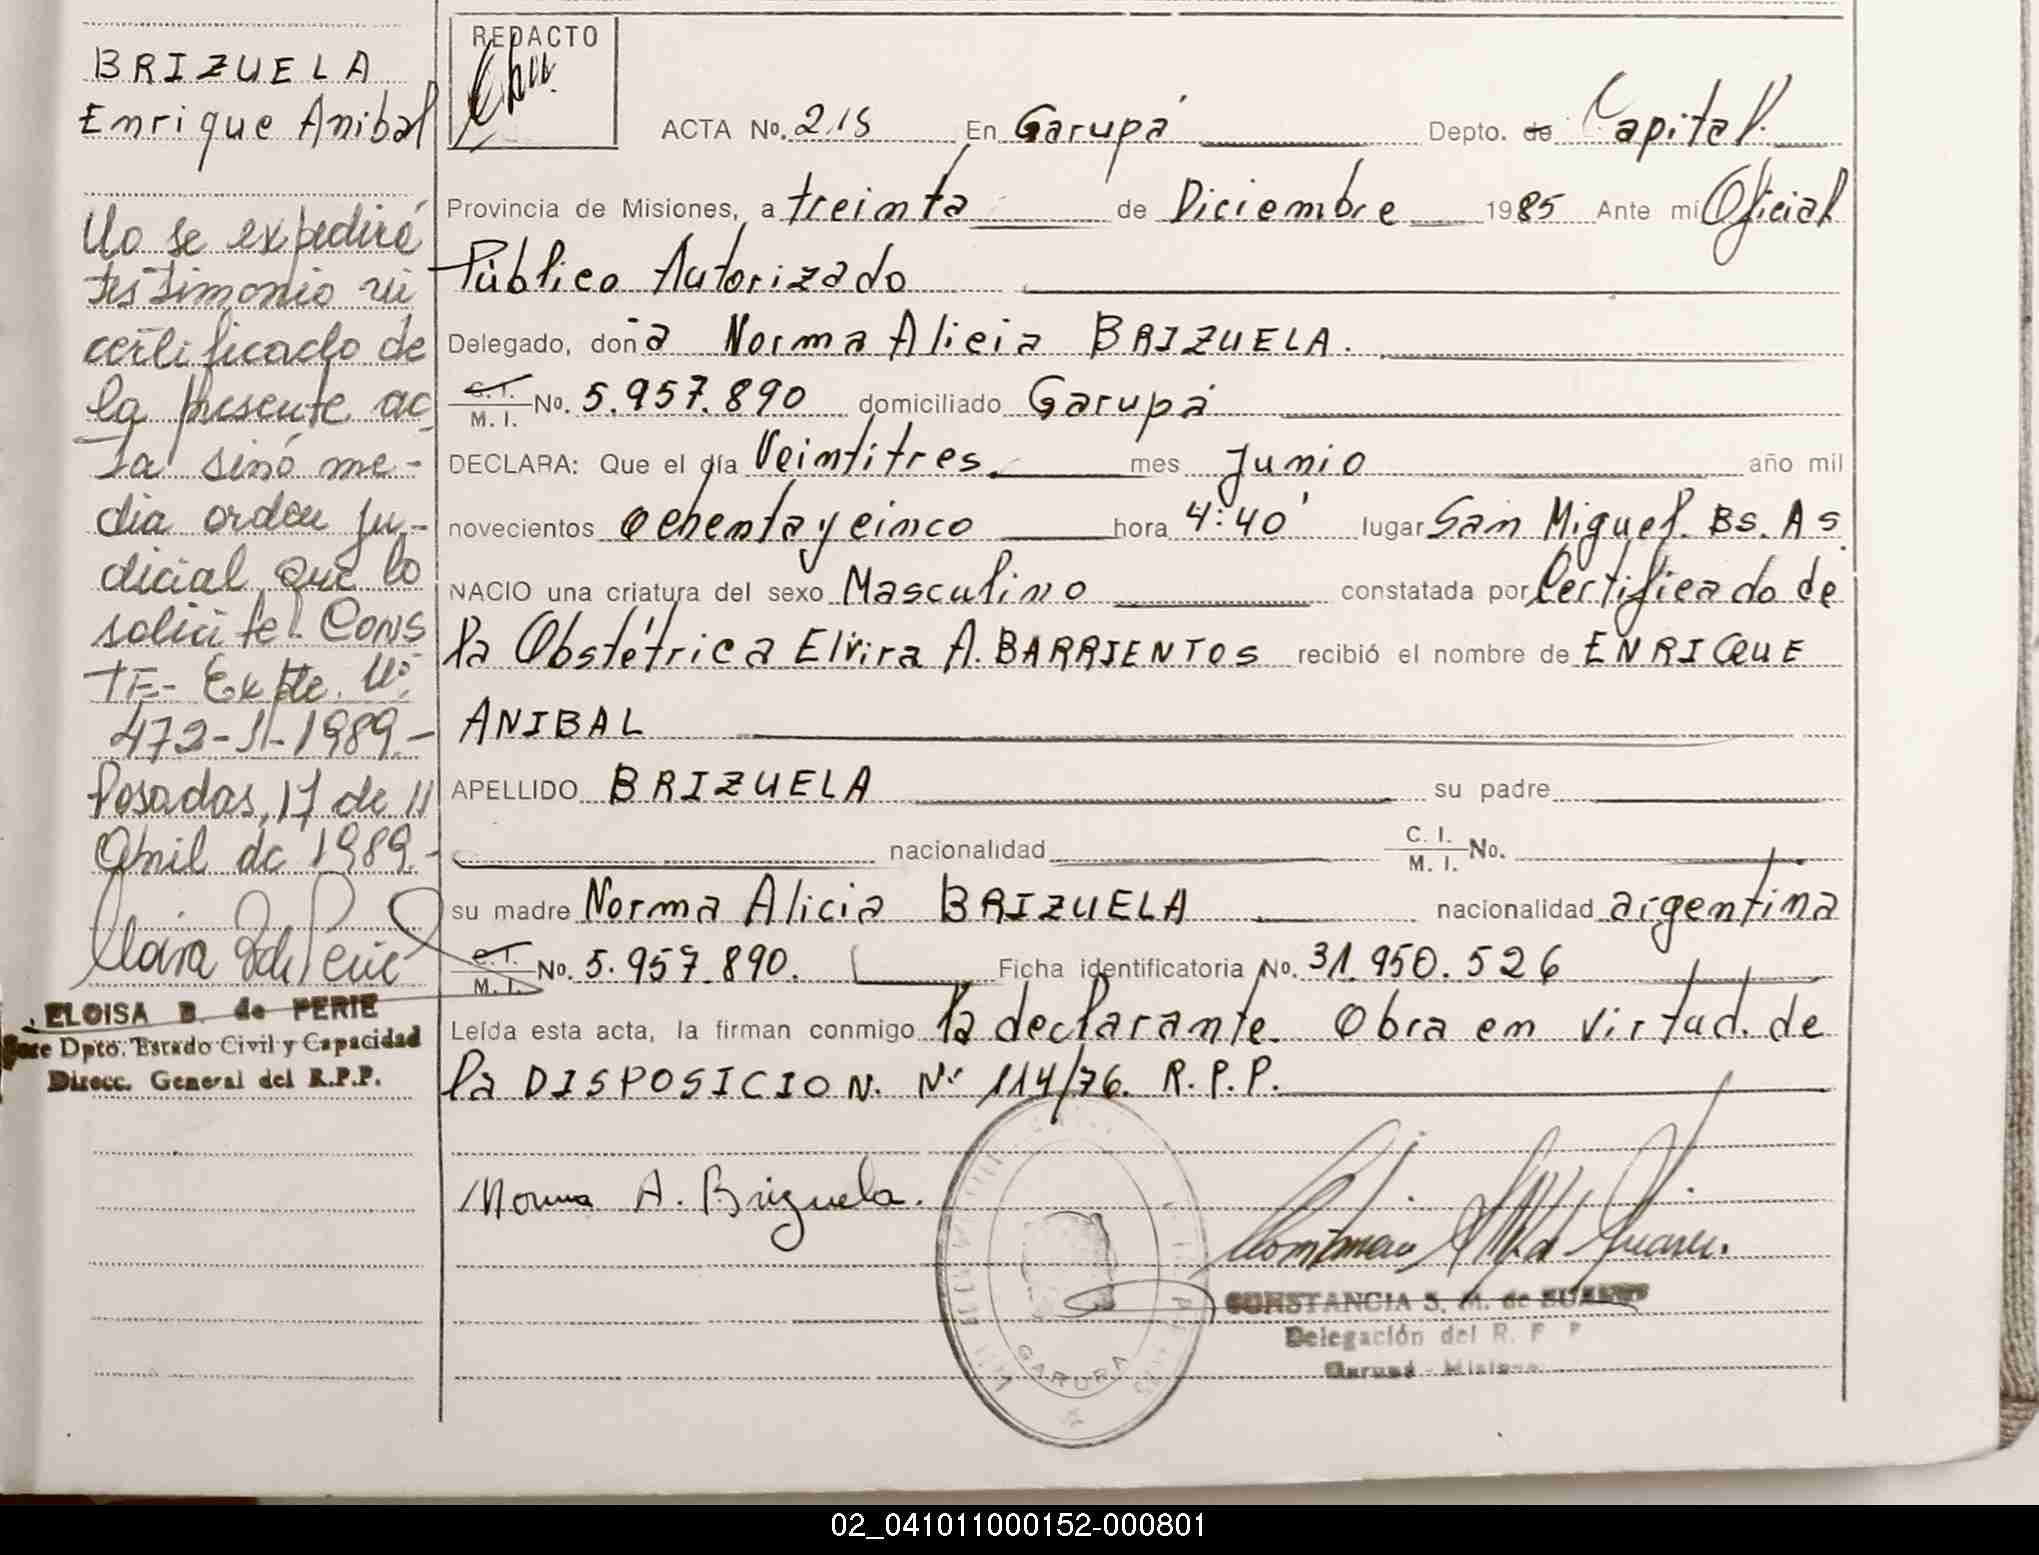 BRIZUELA
Enrique Anibal
No se expedirá
testimonio ni
certificado de
la presente ac
ta sinó me-
dia orden ju-
dicial que lo
solicite. CONS
TE- Expte. Nº
472- -1989.-
Posadas, 17 de
Abril de 1989.-
ELOISA B. de PERIE
Dpto. Estado Civil y Capacidad
Direcc. General del R.P.P.
REDACTO
ACTA No. 215 En Garupá Depto. de Capital.
Provincia de Misiones, a treinta de Diciembre 1985 Ante mí Oficial
Público Autorizado
Delegado, doña Norma Alicia BRIZUELA.
C.I. M.I. No. 5.957.890 domiciliado Garupá
DECLARA: Que el día Veintitres. mes Junio año mil
novecientos Ochenta y cinco hora 4:40' lugar San Miguel. Bs. As
NACIO una criatura del sexo Masculino constatada por Certificado de
la Obstétrica Elvira A. BARRIENTOS recibió el nombre de ENRIQUE
ANIBAL
APELLIDO BRIZUELA su padre
nacionalidad C. I. M. I. No.
su madre Norma Alicia BRIZUELA nacionalidad argentina
C.I. M.I. No. 5.957.890. Ficha identificatoria No. 31.950.526
Leída esta acta, la firman conmigo la declarante. Obra en virtud. de
la DISPOSICION. Nº 114/76. R.P.P.
Norma A. Brizuela.
GARUPA
CONSTANCIA S. M. de SUAREZ
Delegación del R. P. P
Garupá - Misiones
02_041011000152-000801